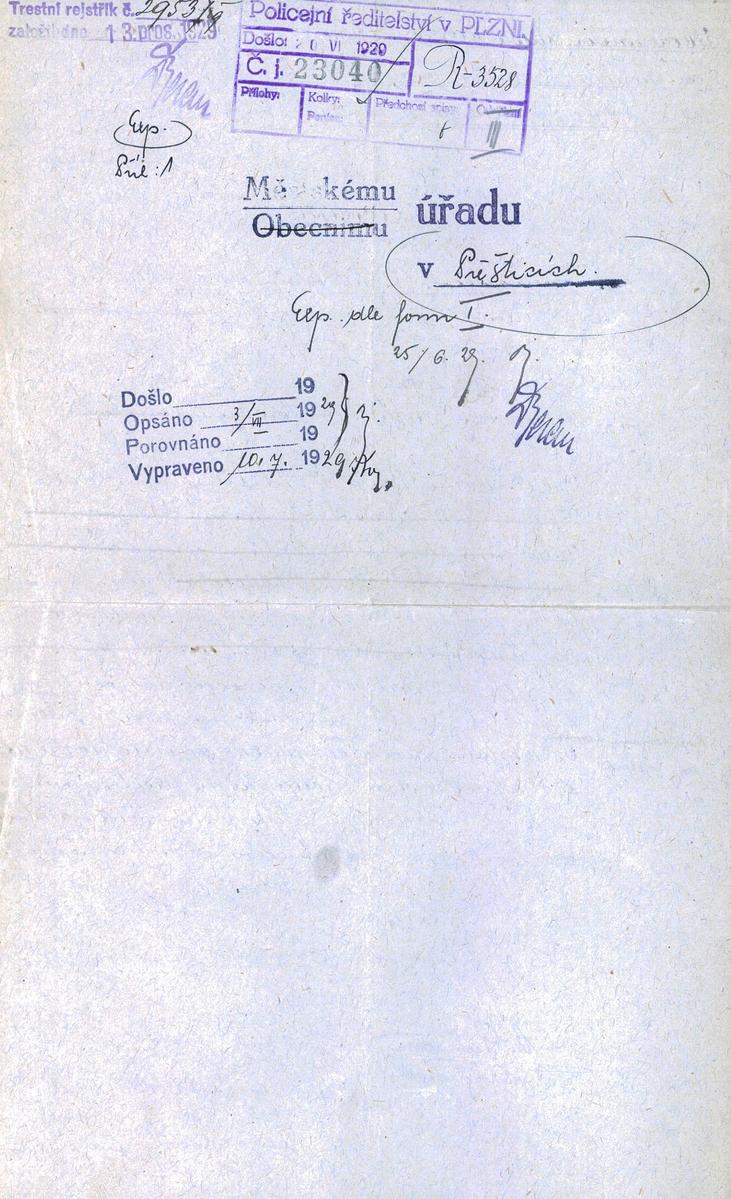 Trestní rejstřík č. 2953/
založil dne 13. pros. 1929
Policejní ředitelství v PLZNI.
Došlo: 20 VI 1929
Č. j. 23040
R-3528
Přílohy:
Kolky:
Předchozí spisy:
Oddělení
III
Exp.
Příl: 1
Městskému
Obecnímu
úřadu
v Přešticích.
Exp. dle form I.
25/6. 29.
Došlo 19
Opsáno 3/VII 1929
Porovnáno 19
Vypraveno 10.7. 1929